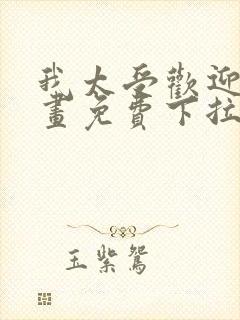 我太受歡迎
畫免費下拉
玉紫鴛